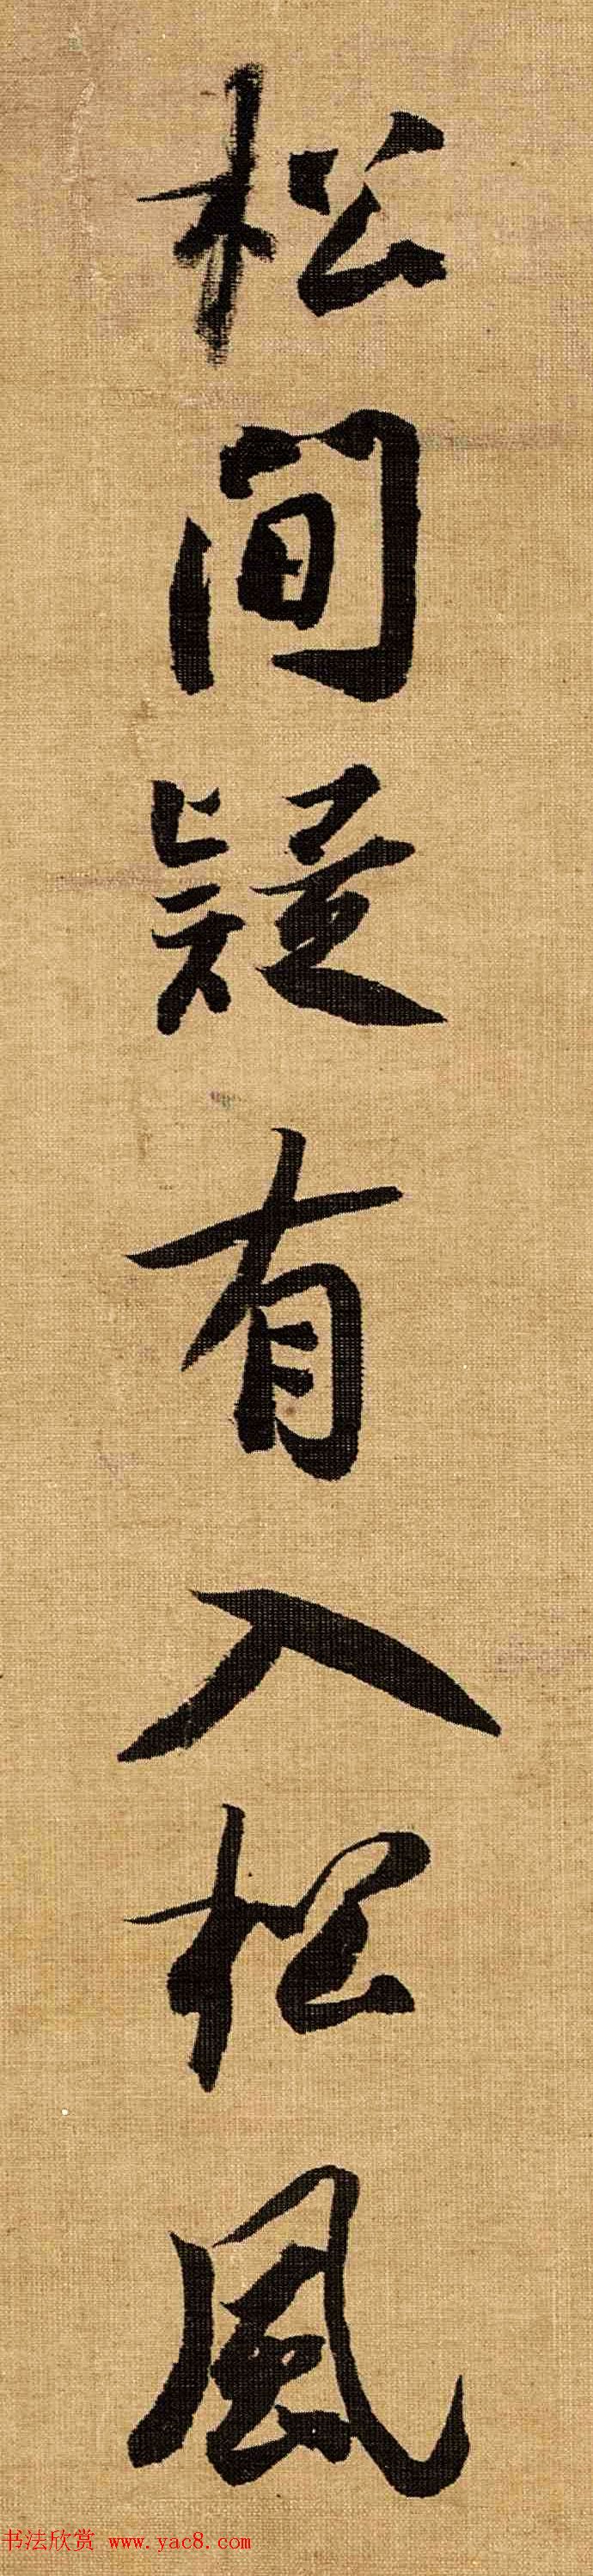 松間疑有入松風
书法欣赏 www.yac8.com